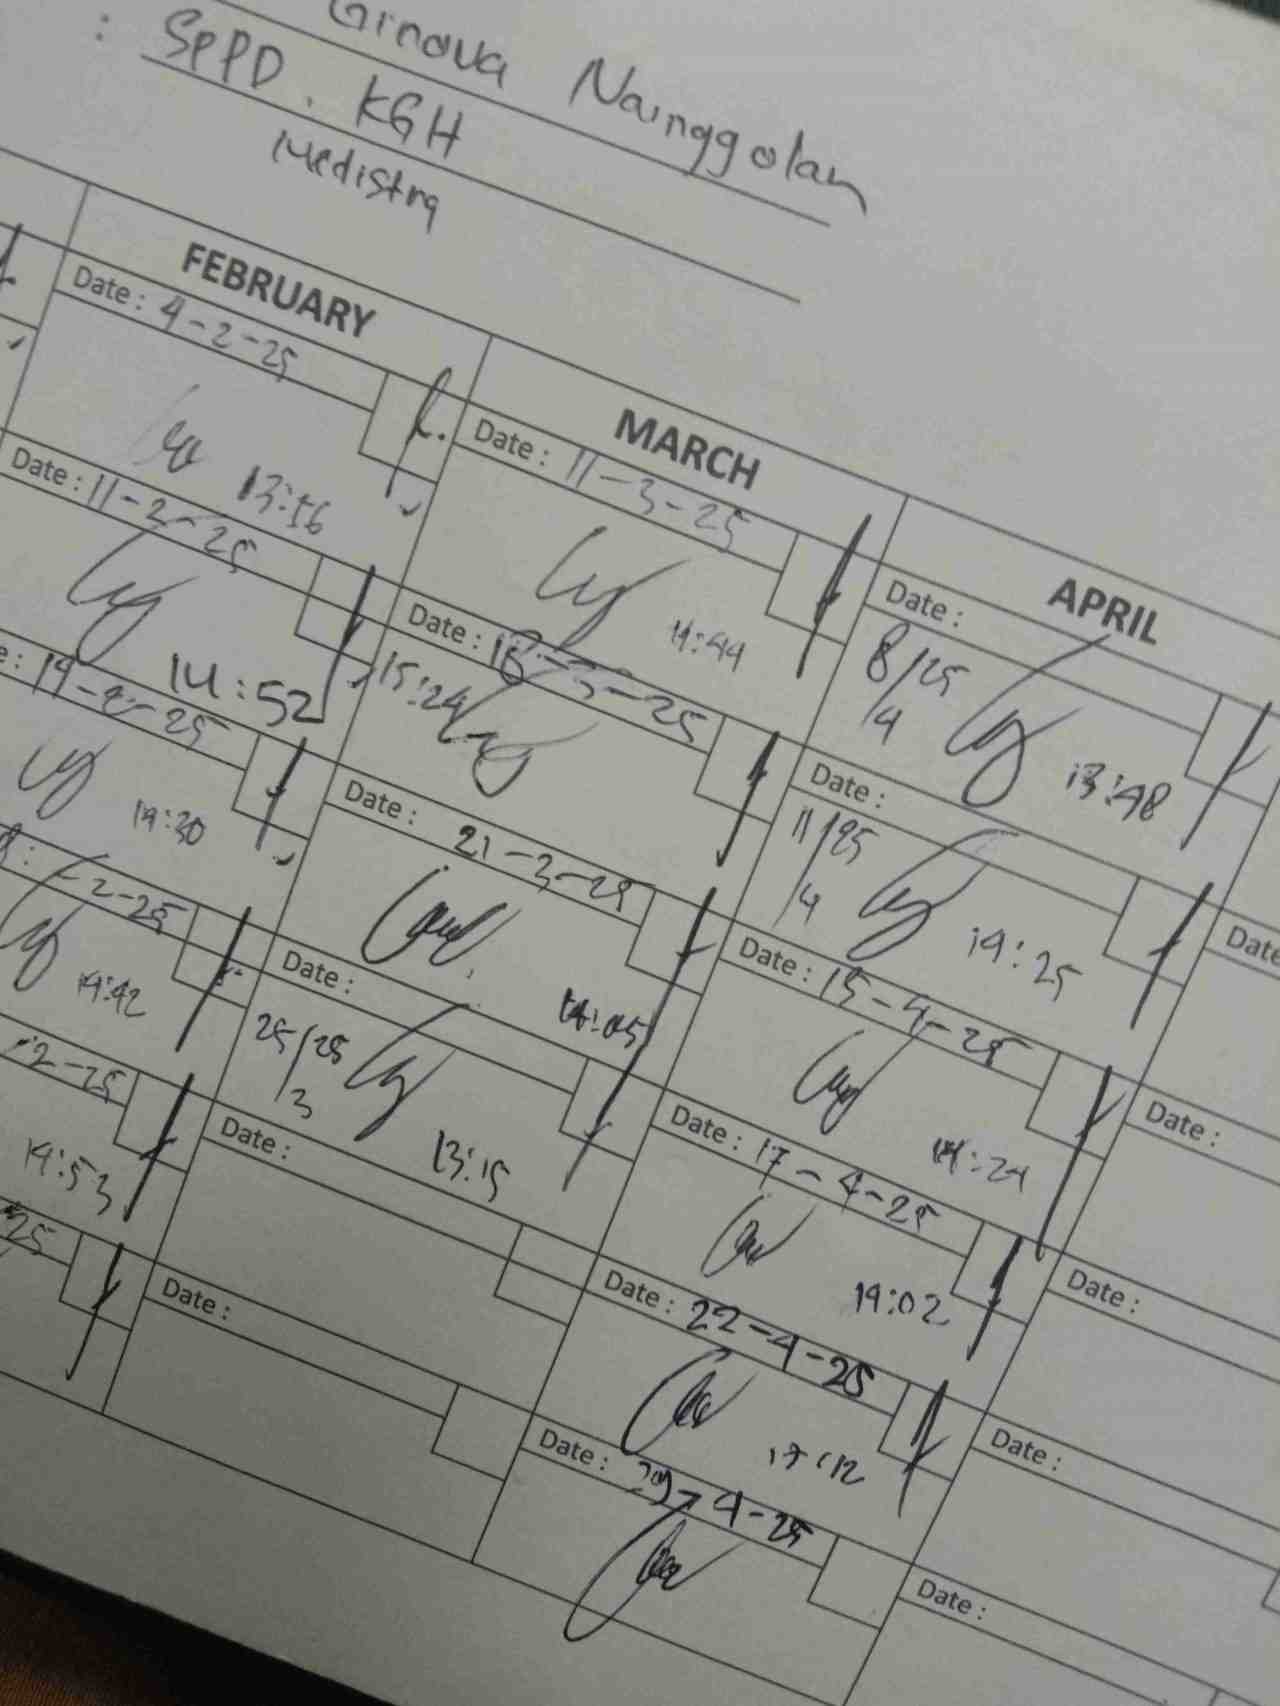 Ginova Nainggolan
: SpPD. KGH
Medistra
FEBRUARY
Date : 4-2-25
13:56
Date : 11-2-25
14:52
19-2-25
14:30
-2-25
14:42
-2-25
14:53
25
MARCH
Date : 11-3-25
14:44
Date : 18-3-25
15:24
Date : 21-3-25
14:05
Date :
25/25
/3
13:15
Date :
Date :
APRIL
Date :
8/25
/4
13:48
Date :
11/25
/4
14:25
Date : 15-4-25
14:24
Date : 17-4-25
14:02
Date : 22-4-25
17:12
Date : 29-4-25
Date
Date :
Date :
Date :
Date :